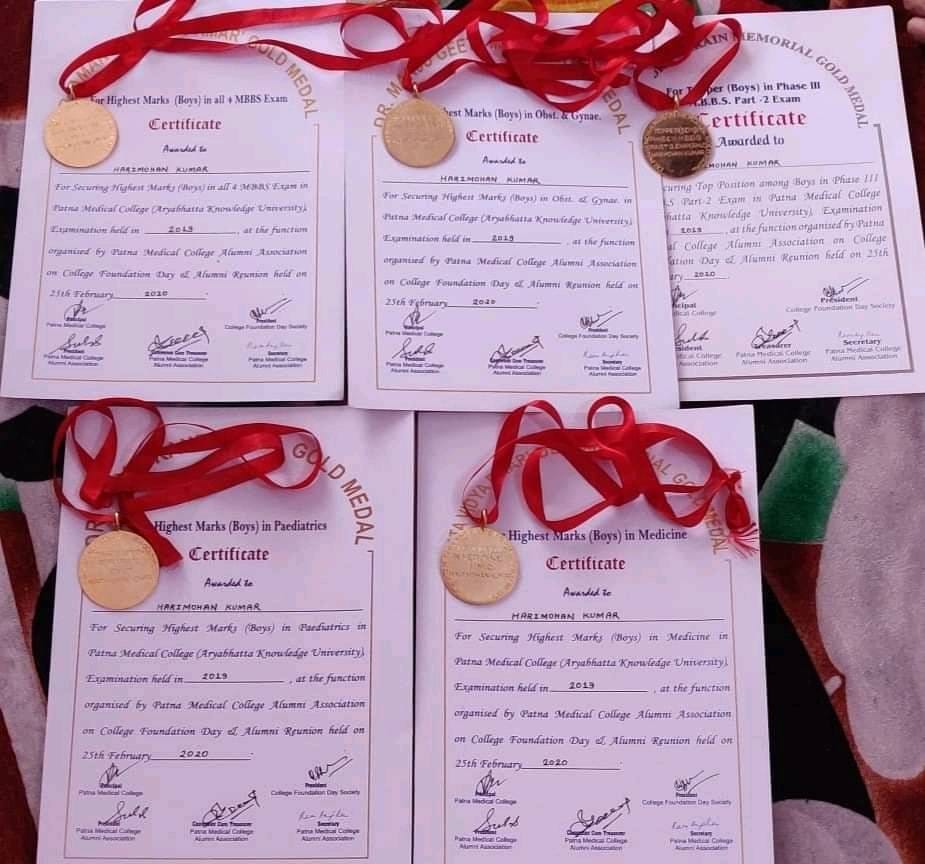 GOLD MEDAL
For Highest Marks (Boys) in all 4 MBBS Exam
Certificate
Awarded to
HARIMOHAN KUMAR
For Securing Highest Marks (Boys) in all 4 MBBS Exam in
Patna Medical College (Aryabhatta Knowledge University),
Examination held in 2019, at the function
organised by Patna Medical College Alumni Association
on College Foundation Day & Alumni Reunion held on
25th February 2020
Principal
Patna Medical College
President
College Foundation Day Society
President
Patna Medical College
Alumni Association
Treasurer
Patna Medical College
Alumni Association
Secretary
Patna Medical College
Alumni Association
DR.
MEDAL
Marks (Boys) in Obst. & Gynae.
Certificate
Awarded to
HARIMOHAN KUMAR
For Securing Highest Marks (Boys) in Obst. & Gynae. in
Patna Medical College (Aryabhatta Knowledge University),
Examination held in 2019, at the function
organised by Patna Medical College Alumni Association
on College Foundation Day & Alumni Reunion held on
25th February 2020
Principal
Patna Medical College
President
College Foundation Day Society
President
Patna Medical College
Alumni Association
Treasurer
Patna Medical College
Alumni Association
Secretary
Patna Medical College
Alumni Association
MEMORIAL GOLD MEDAL
(Boys) in Phase III
Part -2 Exam
Certificate
Awarded to
KUMAR
Top Position among Boys in Phase III
Part-2 Exam in Patna Medical College
Knowledge University), Examination
2019, at the function organised by Patna
College Alumni Association on College
Day & Alumni Reunion held on 25th
2020
President
College Foundation Day Society
Treasurer
Patna Medical College
Alumni Association
Secretary
Patna Medical College
Alumni Association
GOLD MEDAL
Highest Marks (Boys) in Paediatrics
Certificate
Awarded to
HARIMOHAN KUMAR
For Securing Highest Marks (Boys) in Paediatrics in
Patna Medical College (Aryabhatta Knowledge University),
Examination held in 2019, at the function
organised by Patna Medical College Alumni Association
on College Foundation Day & Alumni Reunion held on
25th February 2020
Principal
Patna Medical College
President
College Foundation Day Society
President
Patna Medical College
Alumni Association
Treasurer
Patna Medical College
Alumni Association
Secretary
Patna Medical College
Alumni Association
MEDAL
Highest Marks (Boys) in Medicine
Certificate
Awarded to
HARIMOHAN KUMAR
For Securing Highest Marks (Boys) in Medicine in
Patna Medical College (Aryabhatta Knowledge University),
Examination held in 2019, at the function
organised by Patna Medical College Alumni Association
on College Foundation Day & Alumni Reunion held on
25th February 2020
Principal
Patna Medical College
President
College Foundation Day Society
President
Patna Medical College
Alumni Association
Treasurer
Patna Medical College
Alumni Association
Secretary
Patna Medical College
Alumni Association